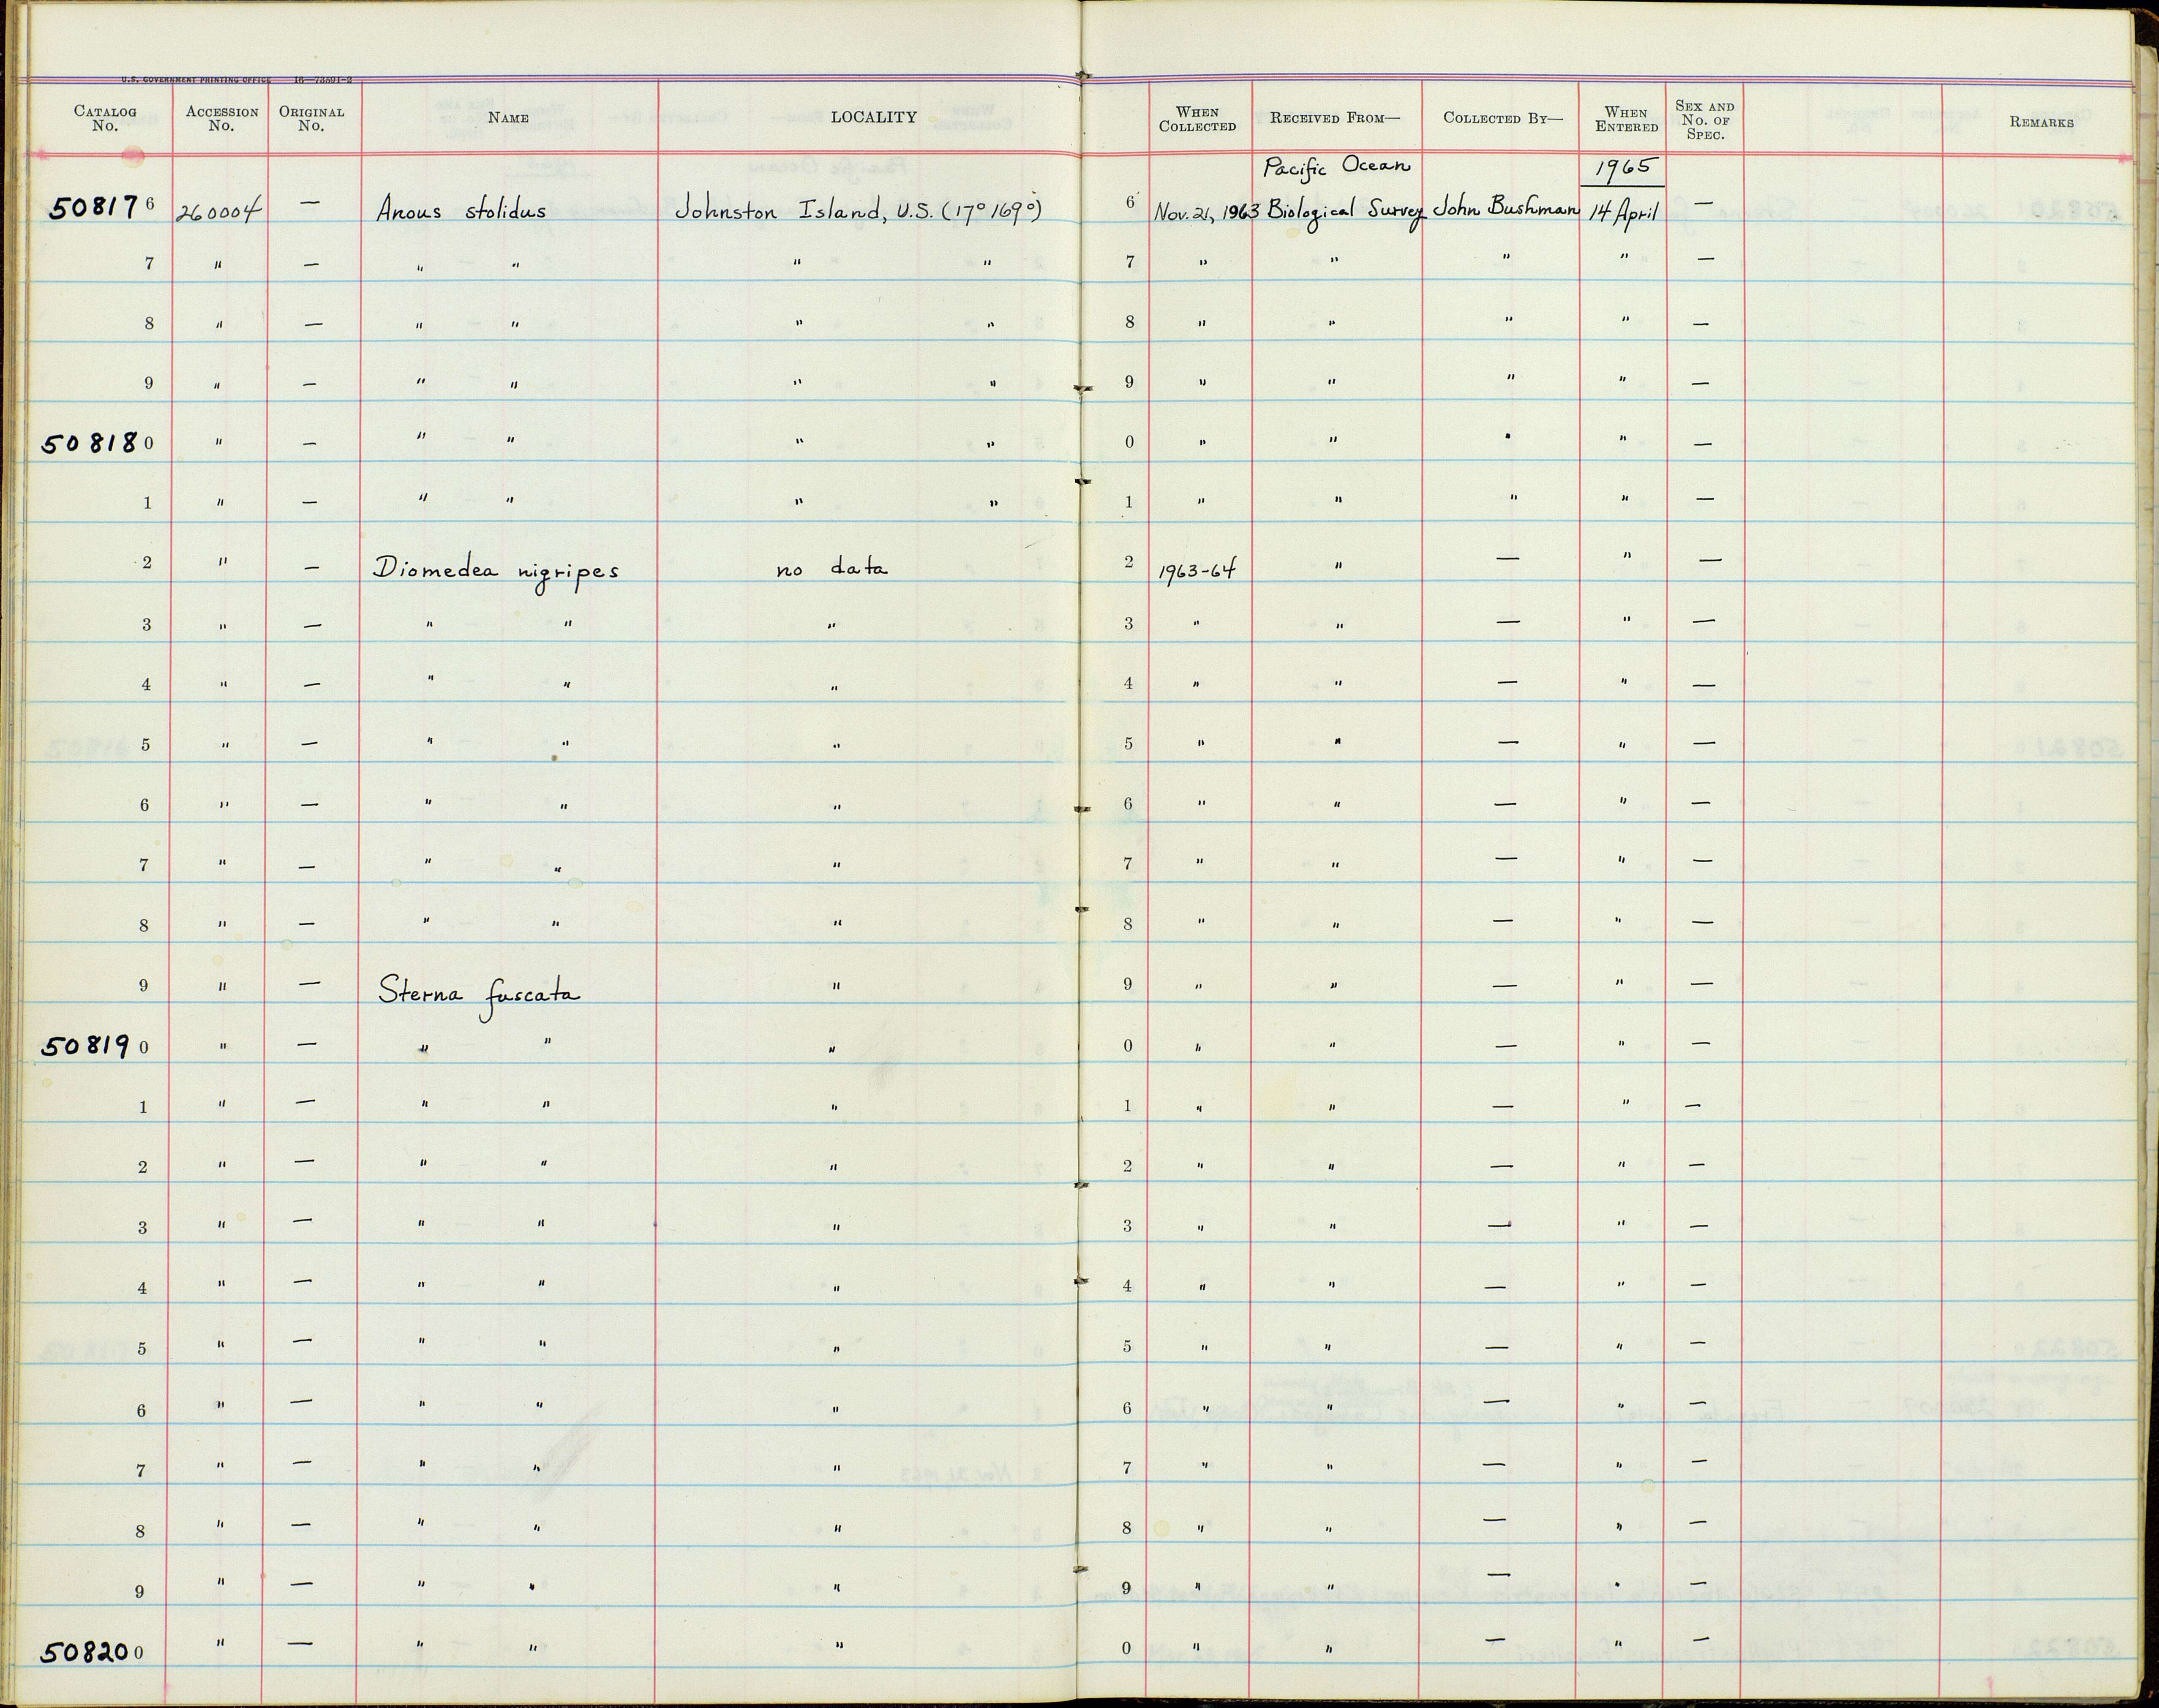 U.S. GOVERNMENT PRINTING OFFICE 16—73501-2
CATALOG No. ACCESSION No. ORIGINAL No. NAME LOCALITY WHEN COLLECTED RECEIVED FROM— COLLECTED BY— WHEN ENTERED SEX AND No. OF SPEC. REMARKS
Pacific Ocean 1965
508176 260004 — Anous stolidus Johnston Island, U.S. (17° 169°) 6 Nov. 21, 1963 Biological Survey John Bushman 14 April —
7 " — " " " " 7 " " " " —
8 " — " " " " 8 " " " " —
9 " — " " " " 9 " " " " —
508180 " — " " " " 0 " " " " —
1 " — " " " " 1 " " " " —
2 " — Diomedea nigripes no data 2 1963-64 " — " —
3 " — " " " 3 " " — " —
4 " — " " " 4 " " — " —
5 " — " " " 5 " " — " —
6 " — " " " 6 " " — " —
7 " — " " " 7 " " — " —
8 " — " " " 8 " " — " —
9 " — Sterna fuscata " 9 " " — " —
508190 " — " " " 0 " " — " —
1 " — " " " 1 " " — " —
2 " — " " " 2 " " — " —
3 " — " " " 3 " " — " —
4 " — " " " 4 " " — " —
5 " — " " " 5 " " — " —
6 " — " " " 6 " " — " —
7 " — " " " 7 " " — " —
8 " — " " " 8 " " — " —
9 " — " " " 9 " " — " —
508200 " — " " " 0 " " — " —